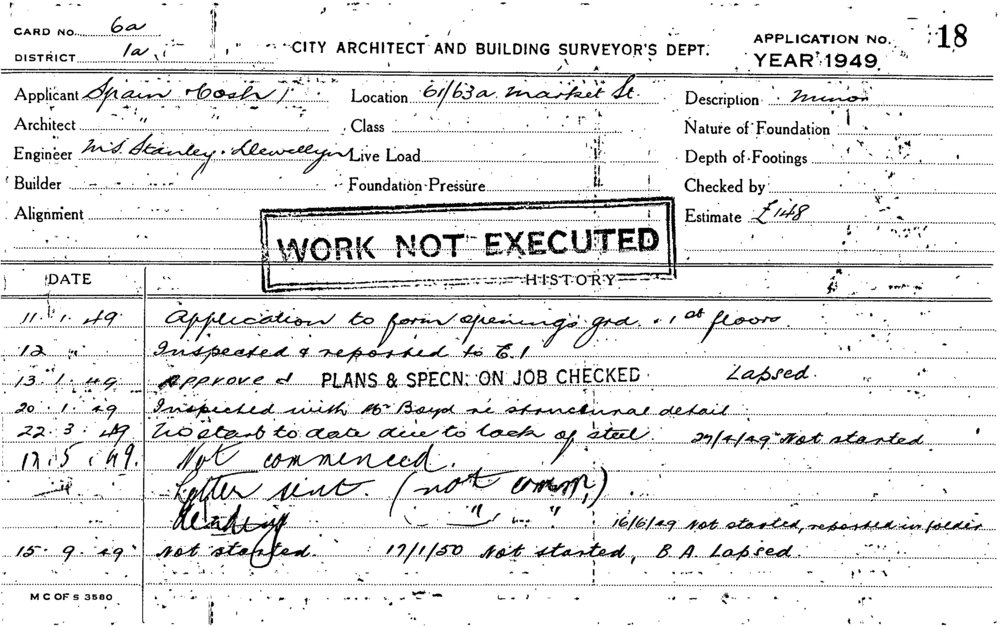 CARD No. 6a
DISTRICT 1a
CITY ARCHITECT AND BUILDING SURVEYOR'S DEPT.
APPLICATION No. 18
YEAR 1949
Applicant Spain & Cosh
Location 61/63a Market St.
Description Minor
Architect
Class
Nature of Foundation
Engineer M.S. Stanley Llewellyn
Live Load
Depth of Footings
Builder
Foundation Pressure
Checked by
Alignment
Estimate £148
WORK NOT EXECUTED
DATE
HISTORY
11.1.49 Application to form openings grd. & 1st floors
12 " Inspected & reported to E.1
13.1.49 Approved PLANS & SPECN. ON JOB CHECKED Lapsed.
20.1.49 Inspected with Mr Boyd re structural detail
22.3.49 No start to date due to lack of steel. 27/4/49 Not started
17.5.49. Not commenced.
Letter sent. (not comm.)
" "
16/6/49 Not started, reported in folder
15.9.49 Not started. 17/1/50 Not started, B A Lapsed.
M C OF S 3580